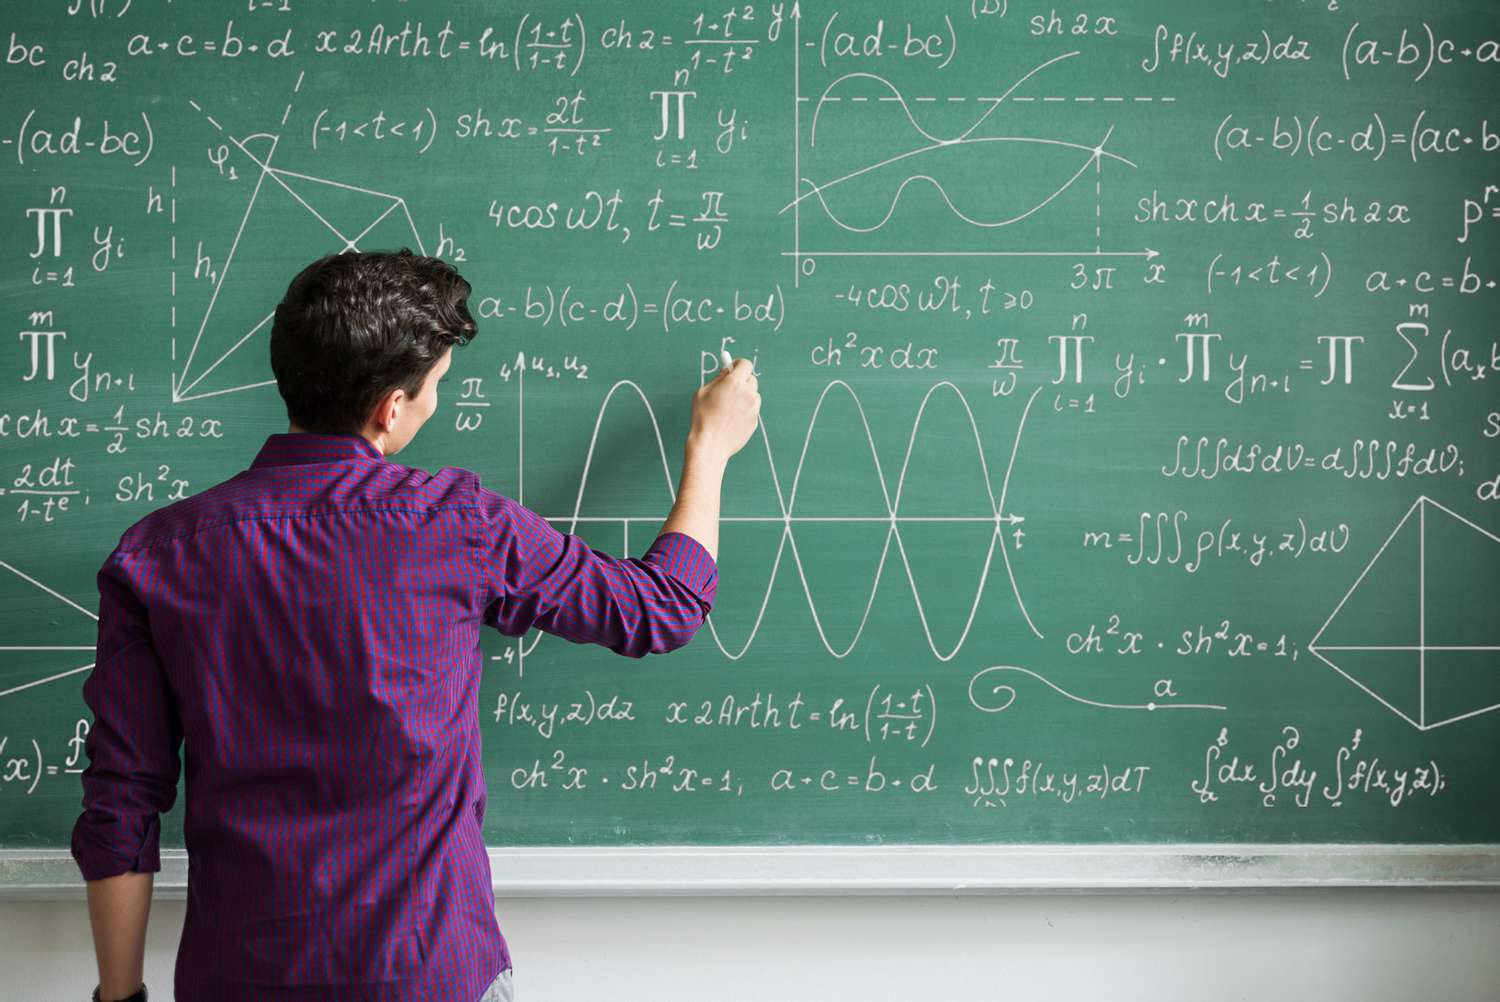 bc ch2 a+c=b+d x2Artht=ln(1+t/1-t) ch2=1+t²/1-t² y -(ad-bc) sh2x ∫f(x,y,z)dz (a-b)c+a
-(ad-bc) φ₁ (-1<t<1) shx=2t/1-t² n∏i=1 yi (a-b)(c-d)=(ac+b
n∏i=1 yi h h₁ h₂ 4cosωt, t=π/ω shxchx=1/2sh2x pr=
0 3π x (-1<t<1) a+c=b+
m∏yn+i a-b)(c-d)=(ac+bd) -4cosωt, t≥0
4 u₁,u₂ p i ch²xdx π/ω n∏i=1 yi·m∏yn+i=∏ m∑x=1(axb
xchx=1/2sh2x π/ω
2dt/1-te; sh²x ∫∫∫dfdυ=d∫∫∫fdυ;
t m=∫∫∫ρ(x,y,z)dυ
-4 ch²x·sh²x=1;
f(x,y,z)dz x2Artht=ln(1+t/1-t) a
(x)=f ch²x·sh²x=1; a+c=b+d ∫∫∫f(x,y,z)dT ∫dx∫dy∫f(x,y,z);